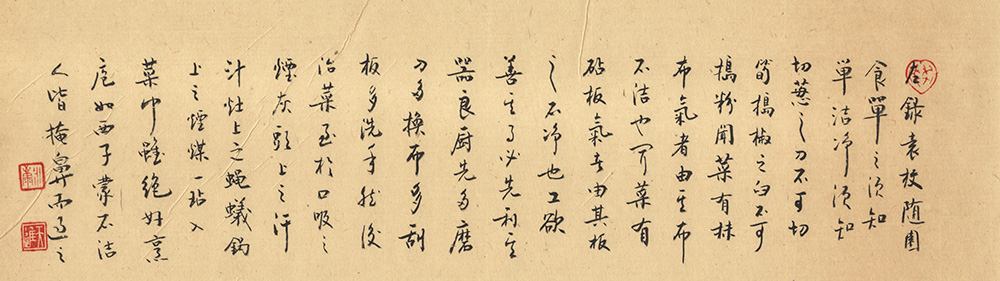 録袁枚随園
食單之须知
単洁净须知
切葱之刀不可切
筍搗椒之臼不可
搗粉聞菜有抹
布氣者由其布
不洁也闻菜有
砧板氣者由其板
之不净也工欲
善其事必先利其
器良厨先多磨
刀多換布多刮
板多洗手然後
治菜至於口吸之
煙灰頭上之汗
汁灶上之蝇蟻鍋
上之煙煤一玷入
菜中雖絶好烹
庖如西子蒙不洁
人皆掩鼻而过之